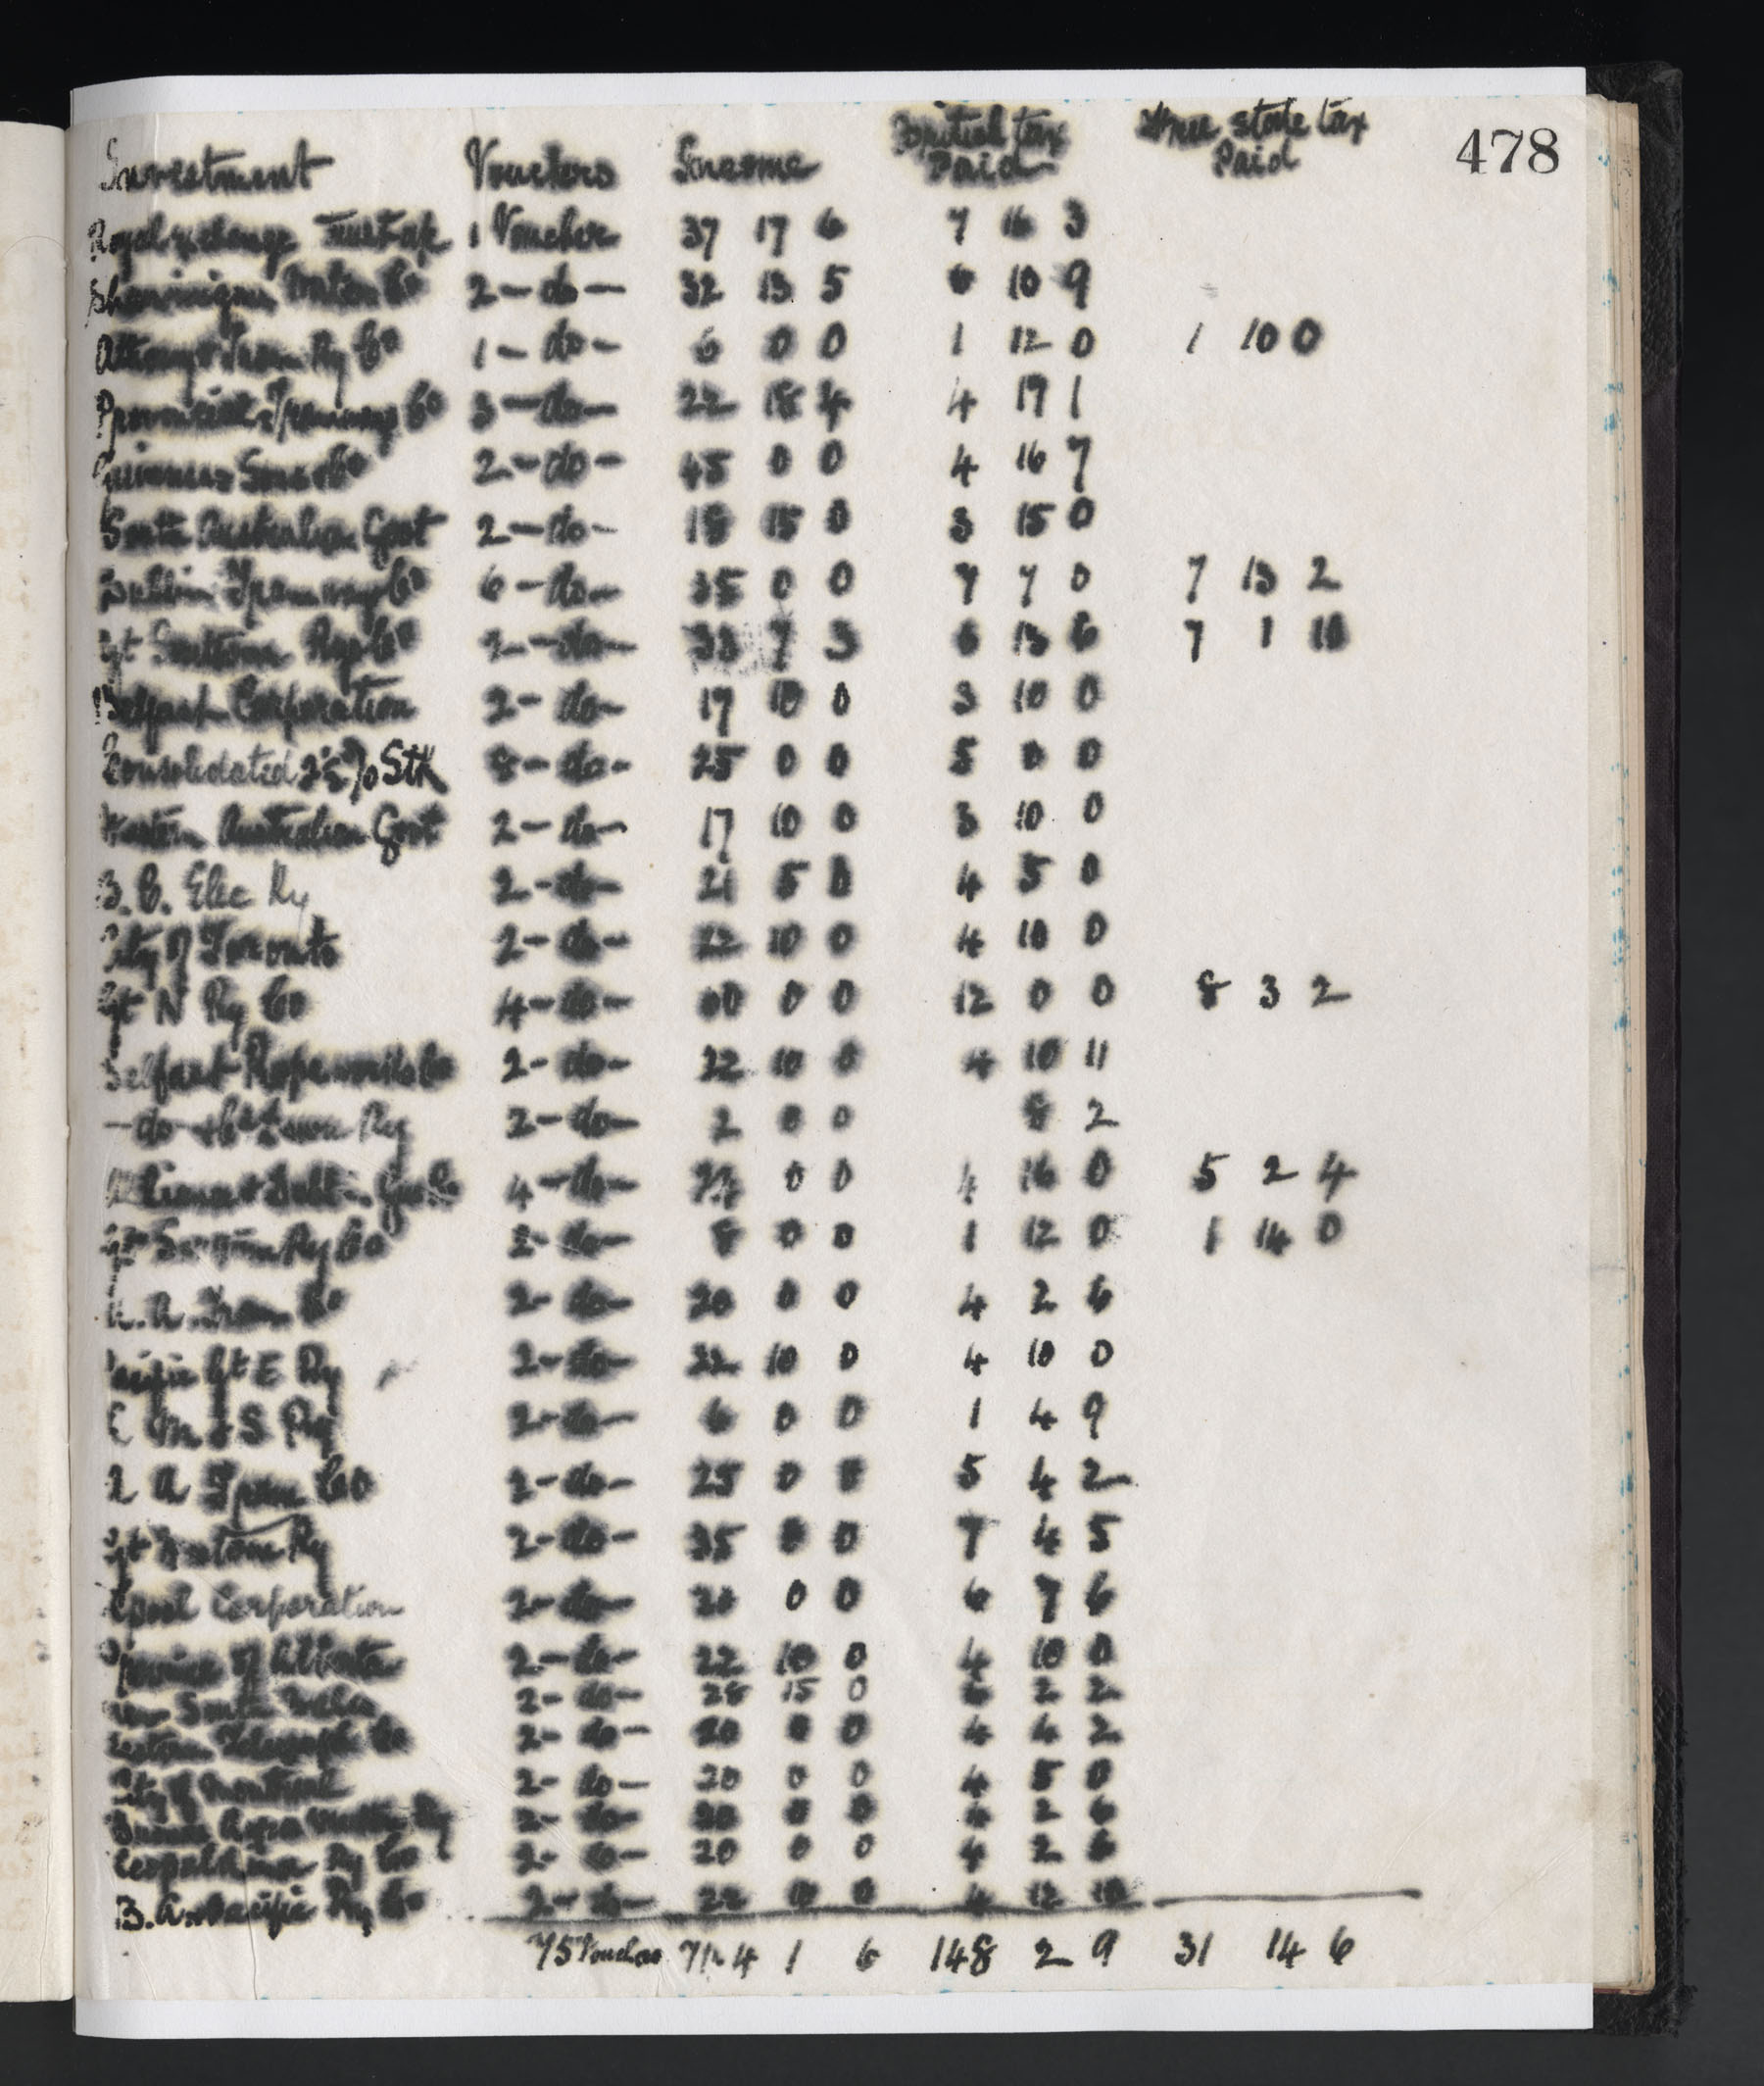 478
Investment Vouchers Income British tax Paid Free state tax Paid
Royal Exchange 1 Voucher 37 17 6 7 16 3
2 - do - 32 13 5 6 10 9
Ry Co 1 - do - 6 0 0 1 12 0 1 10 0
Provincial Tramways Co 3 - do - 22 18 4 4 19 1
Guinness Son & Co 2 - do - 45 0 0 4 16 7
South Australian Govt 2 - do - 18 15 0 3 15 0
Dublin Tramway Co 6 - do - 35 0 0 7 7 0 7 13 2
Gt Southern Rys Co 2 - do - 33 7 3 6 13 6 7 1 10
Belfast Corporation 2 - do - 17 10 0 3 10 0
Consolidated 2½% Stk 8 - do - 25 0 0 5 0 0
Western Australian Govt 2 - do - 17 10 0 3 10 0
B. C. Elec Ry 2 - do - 21 5 0 4 5 0
City of Toronto 2 - do - 22 10 0 4 10 0
Gt N Ry Co 4 - do - 60 0 0 12 0 0 8 3 2
Belfast Ropeworks Co 2 - do - 22 10 0 4 10 11
- do - & Co Down Ry 2 - do - 2 0 0 8 2
Alliance & Dublin Gas Co 4 - do - 24 0 0 4 16 0 5 2 4
Gt Ry Co 2 - do - 8 0 0 1 12 0 1 14 0
A. Tram Co 2 - do - 20 0 0 4 2 6
Pacific Gt E Ry 2 - do - 22 10 0 4 10 0
M & S Ry 2 - do - 6 0 0 1 4 9
A Tram Co 2 - do - 25 0 0 5 4 2
Gt Western Ry 2 - do - 35 0 0 7 4 5
Lpool Corporation 2 - do - 0 0 6 7 6
Province of Alberta 2 - do - 22 10 0 4 10 0
New South Wales 2 - do - 28 15 0 6 2 2
Western Telegraph Co 2 - do - 20 0 0 4 4 2
City of Montreal 2 - do - 20 0 0 4 5 0
Buenos Ayres Western Ry 2 - do - 20 0 0 4 2 6
Leopoldina Ry Co 2 - do - 20 0 0 4 2 6
B. A. Pacific Ry Co 2 - do - 22 10 0 4 12 10
75 Vouchers 714 1 6 148 2 9 31 14 6